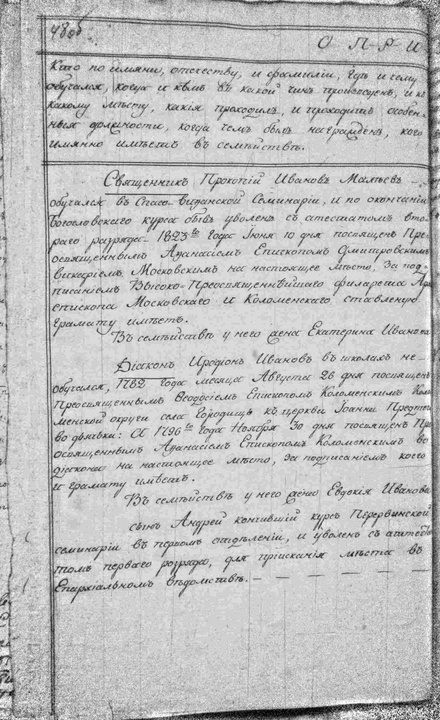 480 об.
О П Р И
Кто по имяни, отечеству, и фамилии, гдѣ и чему
обучался, когда и кѣмъ въ какой чинъ произведенъ, и къ
какому мѣсту, какія проходилъ, и проходитъ особен-
ныя должности, когда чемъ былъ награжденъ, кого
имянно имѣетъ въ семѣйствѣ.
Священникъ Прокопій Ивановъ
обучался въ Спасо-Виѳанской Семинаріи, и по окончаніи
Богословскаго курса бывъ уволенъ съ атестатомъ вто-
раго разряда 1823го года Іюня 10 дня посвященъ Пре-
освященнымъ Аѳанасіемъ Епископомъ Дмитровскимъ
викаріемъ Московскимъ на настоящее мѣсто, За под-
писаніемъ Высоко-Преосвященнѣйшаго Филарета Ар
епископа Московскаго и Коломенскаго, ставленую
Грамату имѣетъ.
Въ семѣйствѣ у него жена Екатерина Иванова
Діаконъ Иродіонъ Ивановъ въ школахъ не-
обучался, 1782 года месяца Августа 26 дня посвященъ
Преосвященнымъ Ѳеодосіемъ Епископомъ Коломенскимъ Коло
менской округи села Городищъ къ церкви Іоанна Предтечи
во дьячка: А 1796го года Ноября 30 дня посвященъ Пре
освященнымъ Аѳанасіемъ Епископомъ Коломенскимъ во
діакона на настоящее мѣсто, за подписаніемъ коего
и грамату имѣетъ.
Въ семѣйствѣ у него жена Евдокія Иванова
сынъ Андрей кончившій курсъ Перервинской
семинаріи въ первомъ отдѣленіи, и уволенъ съ атеста
томъ перваго разряда, для пріисканія мѣста въ
Епархіальномъ вѣдомствѣ.